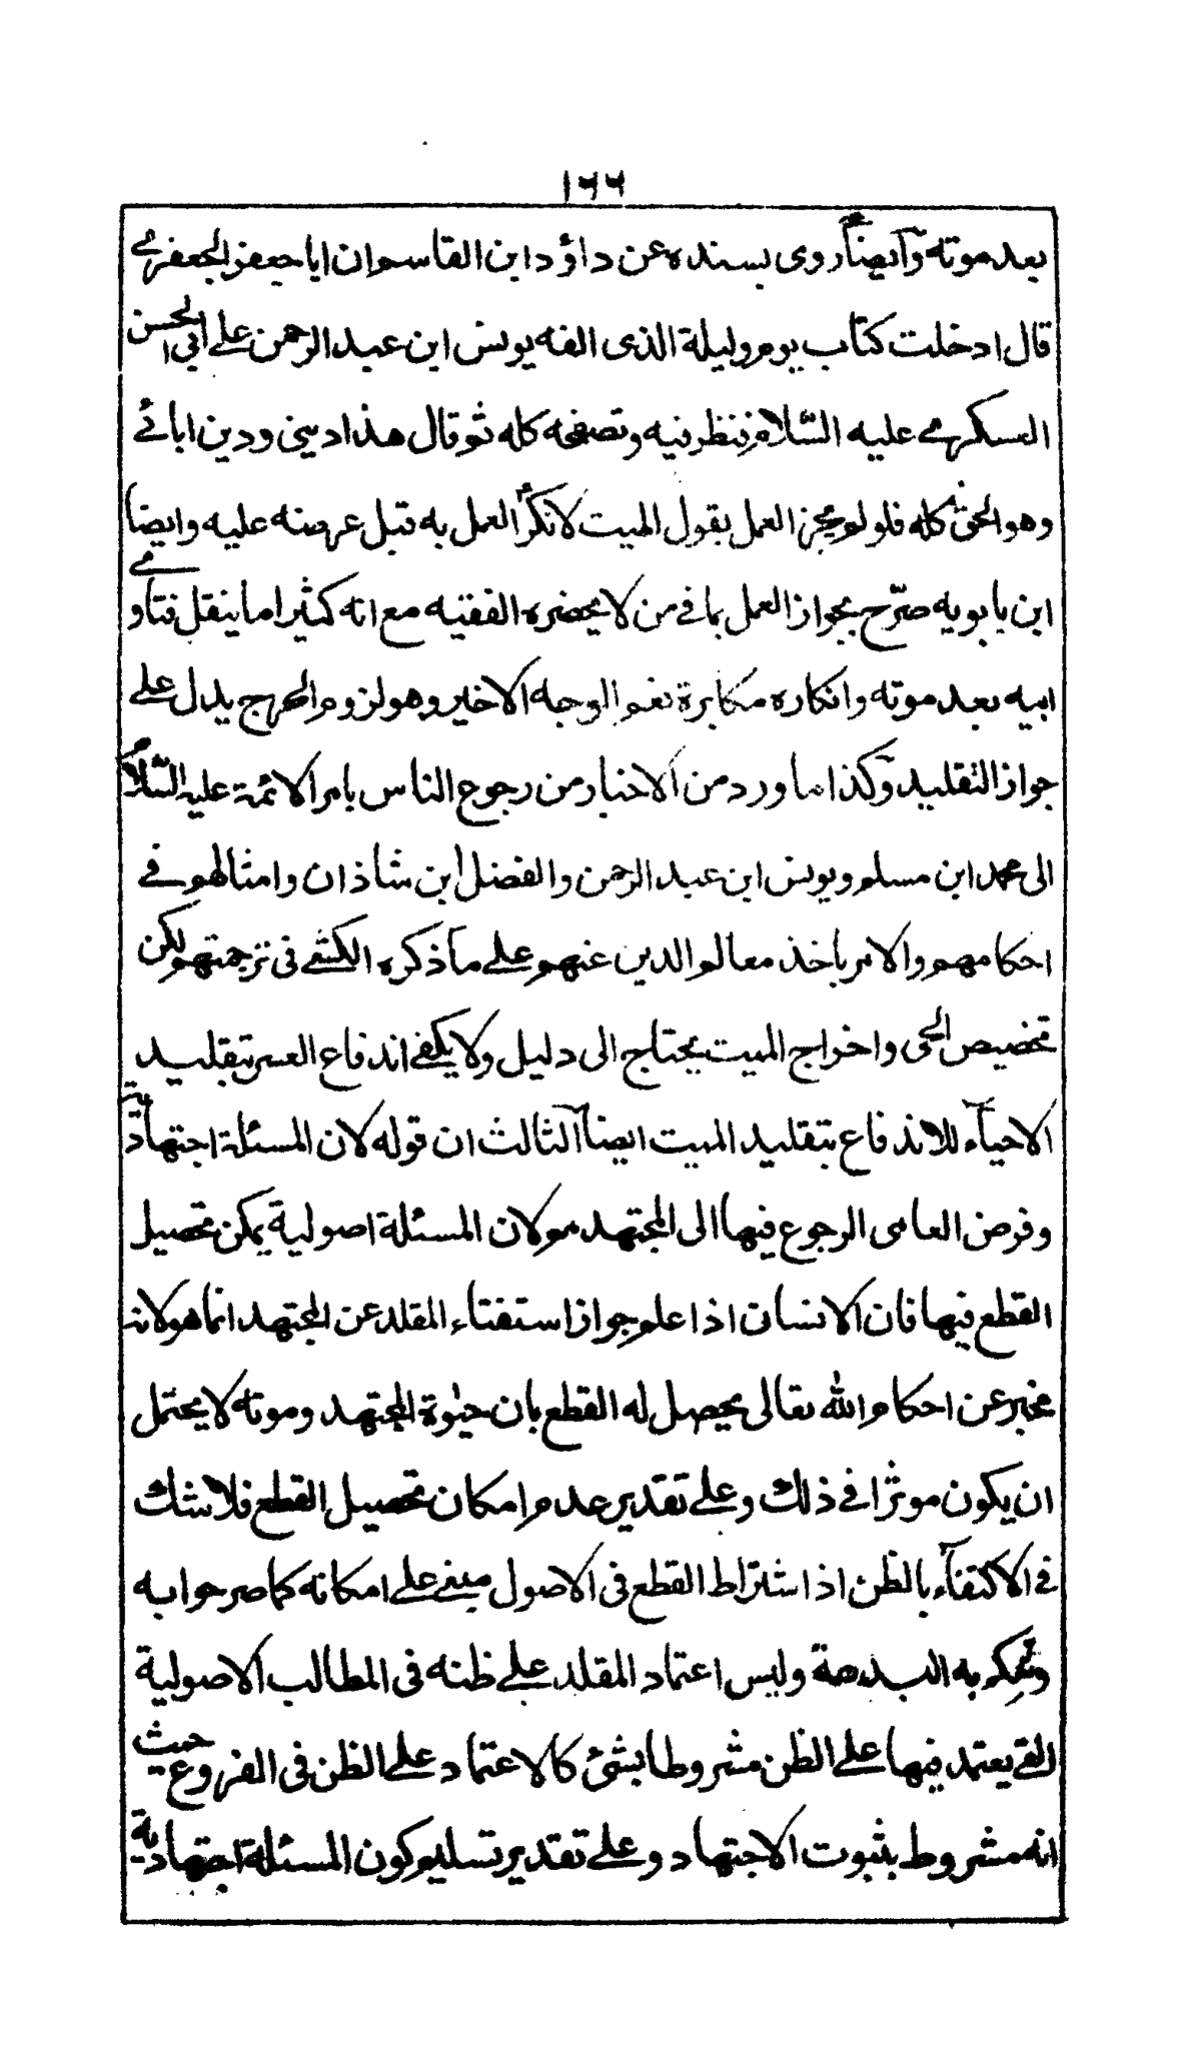 ١٦٦
بعد موته وايضاً روى بسنده عن داؤد ابن القاسم ان ابا جعفر الجعفرى
قال ادخلت كتاب يوم وليلة الذى الفه يونس ابن عبد الرحمن على ابى الحسن
العسكرى عليه السّلام فنظر فيه وتصفحه كله ثم قال هذا دينى ودين ابائى
وهو الحق كله فلو لم يجز العمل بقول الميت لانكر العمل به قبل عرضه عليه وايضا
ابن بابويه صرّح بجواز العمل بما فى من لا يحضره الفقيه مع انه كثيرا ما ينقل فتاوى
ابيه بعد موته وانكاره مكابرة نعم الوجه الاخير وهو لزوم الحرج يدل على
جواز التقليد وكذا ما ورد من الاخبار من رجوع الناس بامر الائمة عليه السّلام
الى محمد ابن مسلم ويونس ابن عبد الرحمن والفضل ابن شاذان وامثالهم فى
احكامهم والامر باخذ معالم الدين عنهم على ما ذكره الكشى فى ترجمتهم لكن
تخصيص الحى واخراج الميت يحتاج الى دليل ولا يكفى اندفاع العسر بتقليد
الاحيآء للاندفاع بتقليد الميت ايضا الثالث ان قوله لان المسئلة اجتهادية
وفرض العامى الرجوع فيها الى المجتهد مم لان المسئلة اصولية يمكن تحصيل
القطع فيها فان الانسان اذا علم جواز استفتاء المقلد عن المجتهد انما هو لانه
مخبر عن احكام الله تعالى يحصل له القطع بان حيوة المجتهد وموته لا يحتمل
ان يكون موثرا فى ذلك وعلى تقدير عدم امكان تحصيل القطع فلا شك
فى الاكتفآء بالظن اذ اشتراط القطع فى الاصول مبنى على امكانه كما صرحوا به
وتحكم به البديهة وليس اعتماد المقلد على ظنه فى المطالب الاصولية
التى يعتمد فيها على الظن مشروطا بشئ كالاعتماد على الظن فى الفروع حيث
انه مشروط بثبوت الاجتهاد وعلى تقدير تسليم كون المسئلة اجتهادية